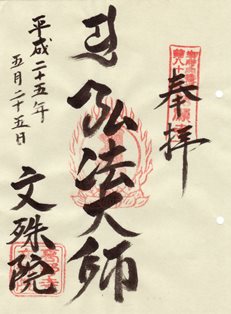 奉拝
弘法大師
文殊院
平成二十五年
五月二十五日